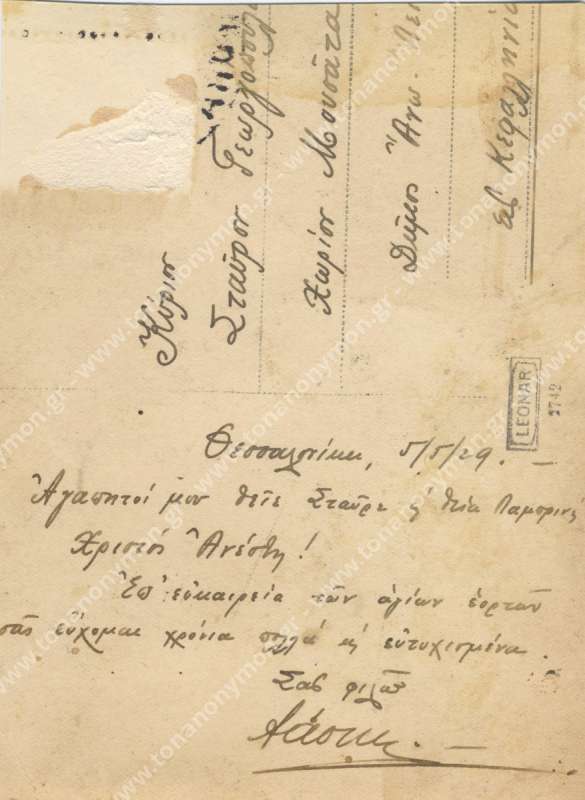 Κύριον
Σταῦρον Γεωργόπουλ
Χωρίον Μουσάτα
Δῆμος Ἄνω
εἰς Κεφαλληνία
LEONAR
3742
Θεσσαλονίκη, 5/5/29. –
Ἀγαπητοί μου θεῖε Σταῦρε κ θεία
Χριστός Ἀνέστη!
Ἐπ' εὐκαιρεία τῶν ἁγίων ἑορτῶν
σᾶς εὔχομαι χρόνια πολλά κ εὐτυχισμένα.
Σας φιλῶ
www.tonanonymon.gr